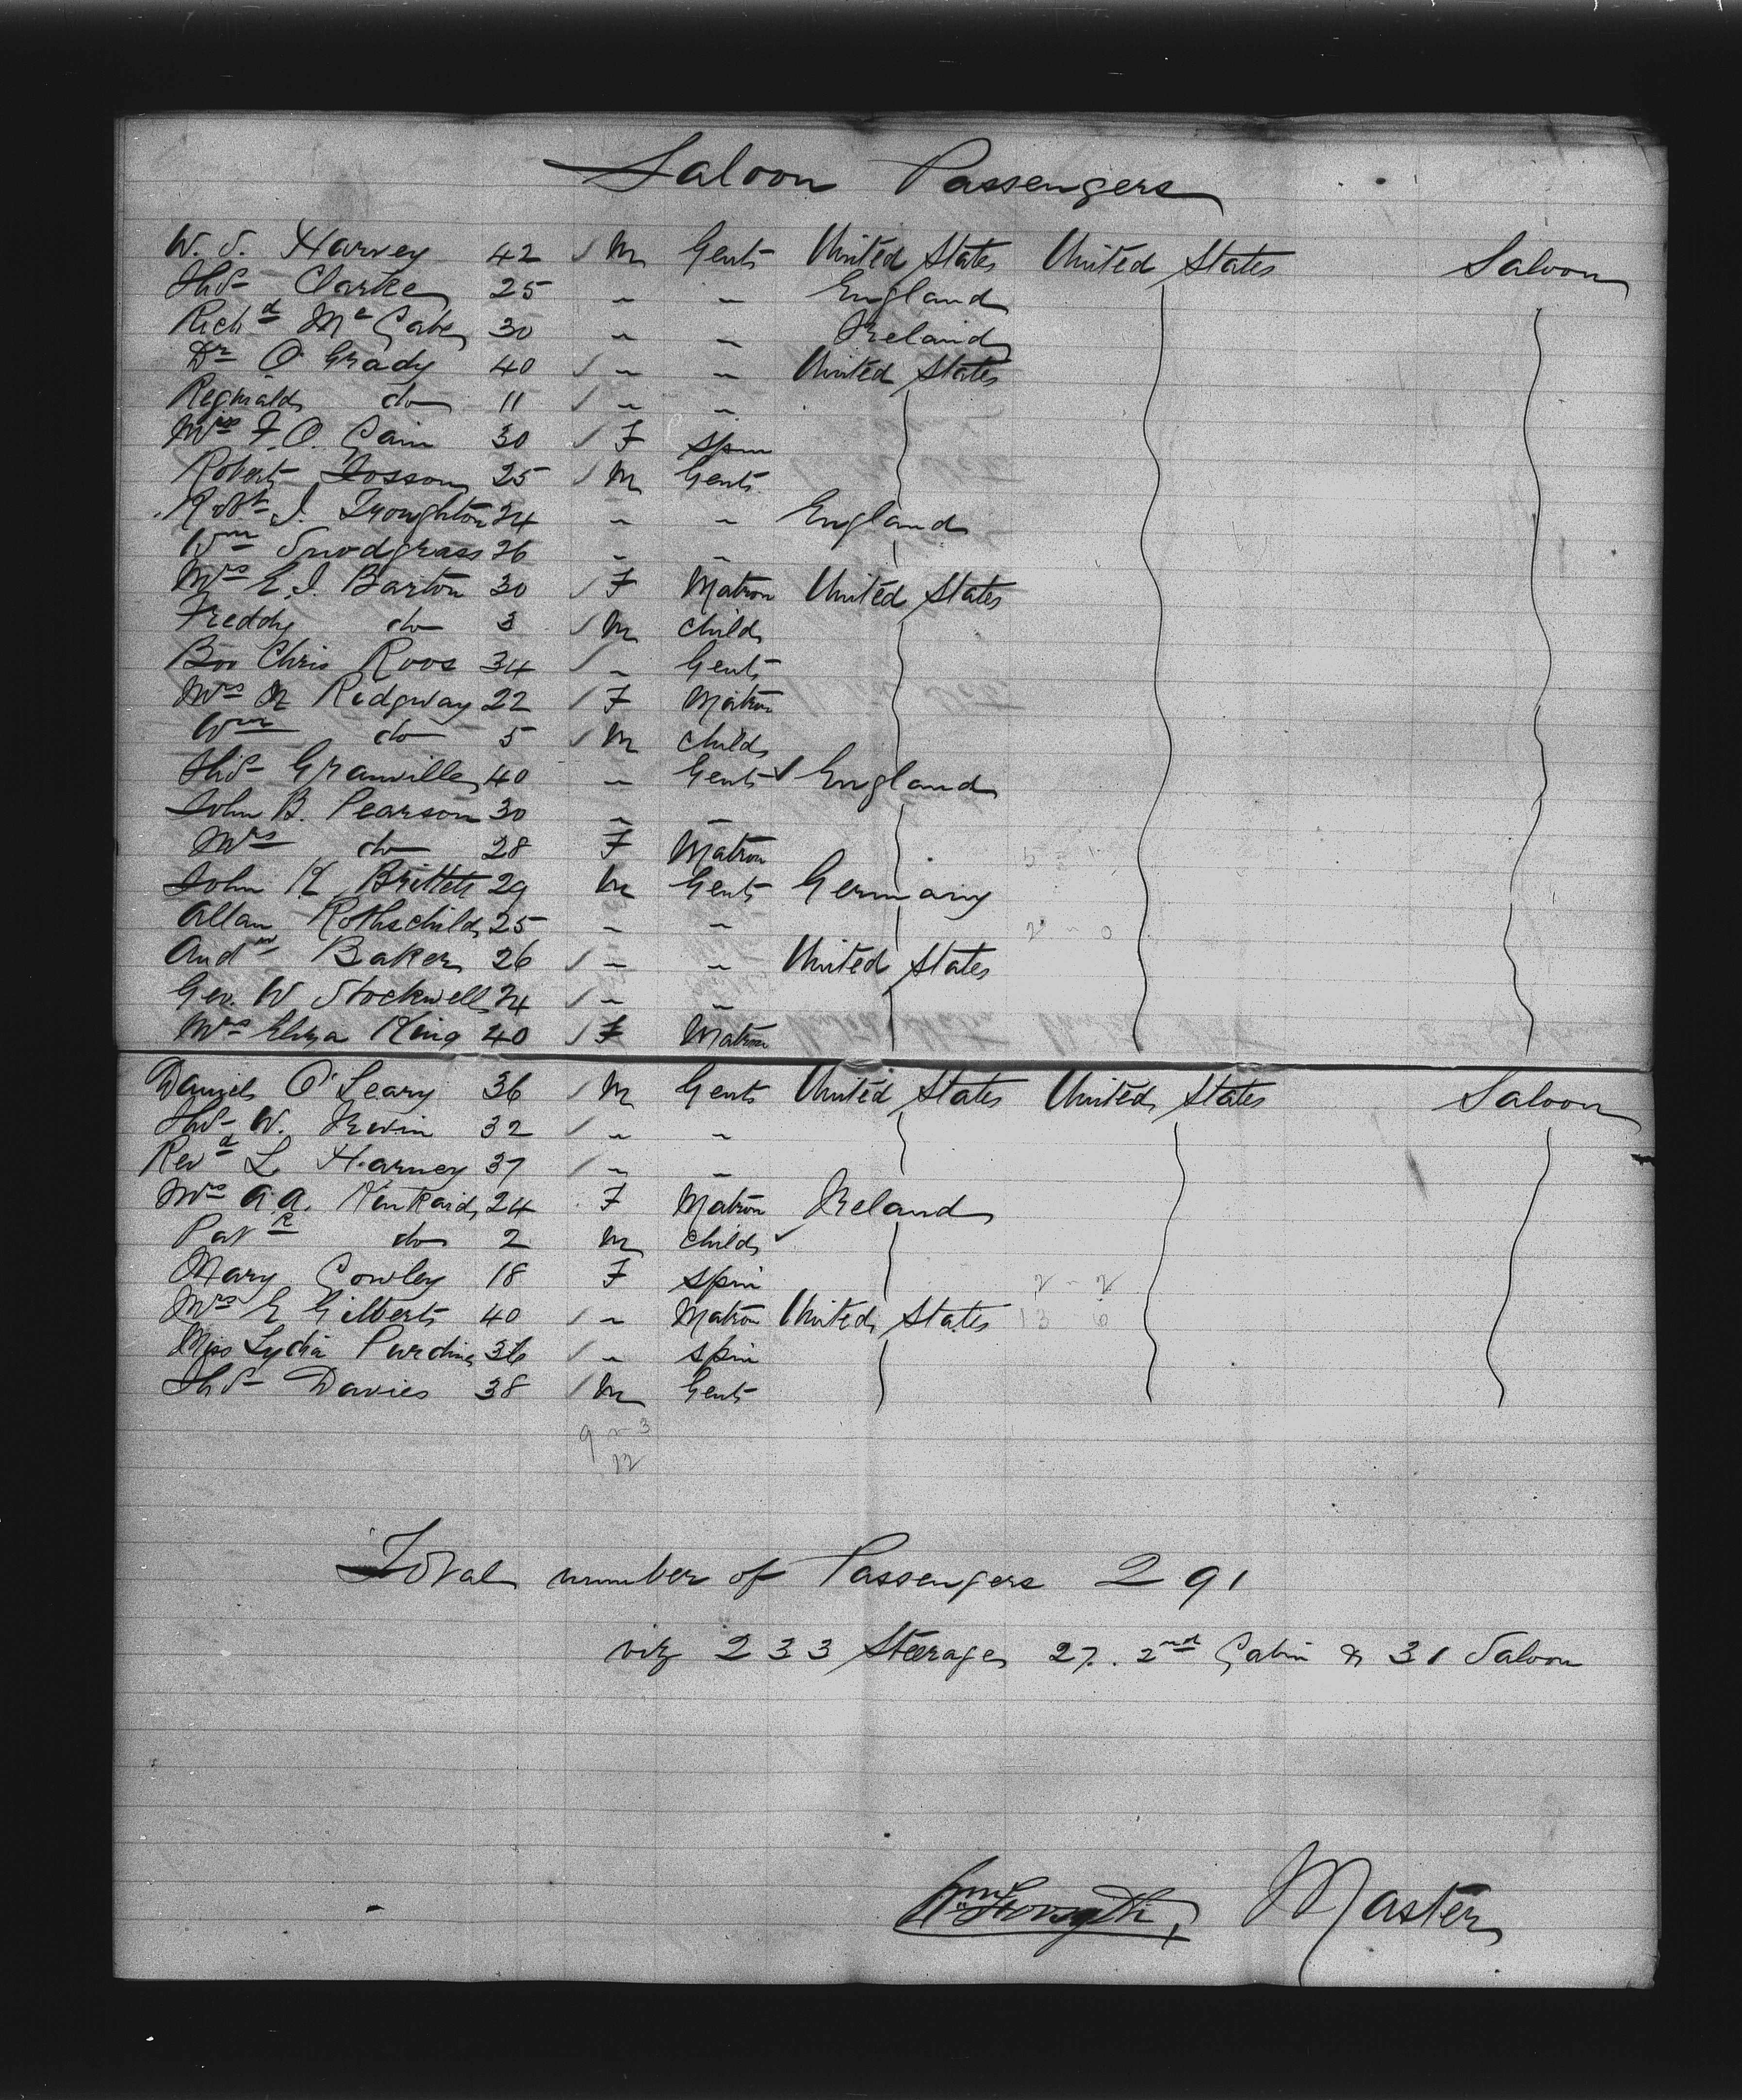 Saloon Passengers
W. S. Harvey 42 ✓ M Gent United States United States Saloon
Thos Clarke 25 " " England
Richd McCabe 30 " " Ireland
Dr O'Grady 40 ✓ " " United States
Reginald do 11 ✓ " "
Miss F. O. Cain 30 ✓ F Spin
Robert 25 ✓ M Gent
Robt J. Troughton 24 " " England
Wm Snodgrass 26 " "
Mrs E. J. Barton 30 ✓ F Matron United States
Freddy do 3 ✓ M Child
Chris Roos 34 ✓ " Gent
Mrs Ridgway 22 ✓ F Matron
Wm do 5 ✓ M Child
Thos Granville 40 " Gent ✓ England
John B. Pearson 30 " "
Mrs do 28 F Matron
John H Brittell 29 M Gent Germany
Allan Rothschild 25 " "
Andw Baker 26 ✓ " " United States
Geo. W Stockwell 24 ✓ " "
Mrs Eliza King 40 ✓ F Matron
Daniel O'Leary 36 ✓ M Gent United States United States Saloon
Thos W. Irwin 32 ✓ " "
Revd L Harney 37 ✓ " "
Mrs A. A. Kinkaid 24 F Matron Ireland
Patk do 2 M Child ✓
Mary Cowley 18 F Spin
Mrs E Gilbert 40 ✓ " Matron United States
Miss Lydia 36 ✓ " Spin
Thos Davies 38 ✓ M Gent
9 - 3
12
Total number of Passengers 291
viz 233 Steerage 27. 2nd Cabin & 31 Saloon
Wm Forsyth Master